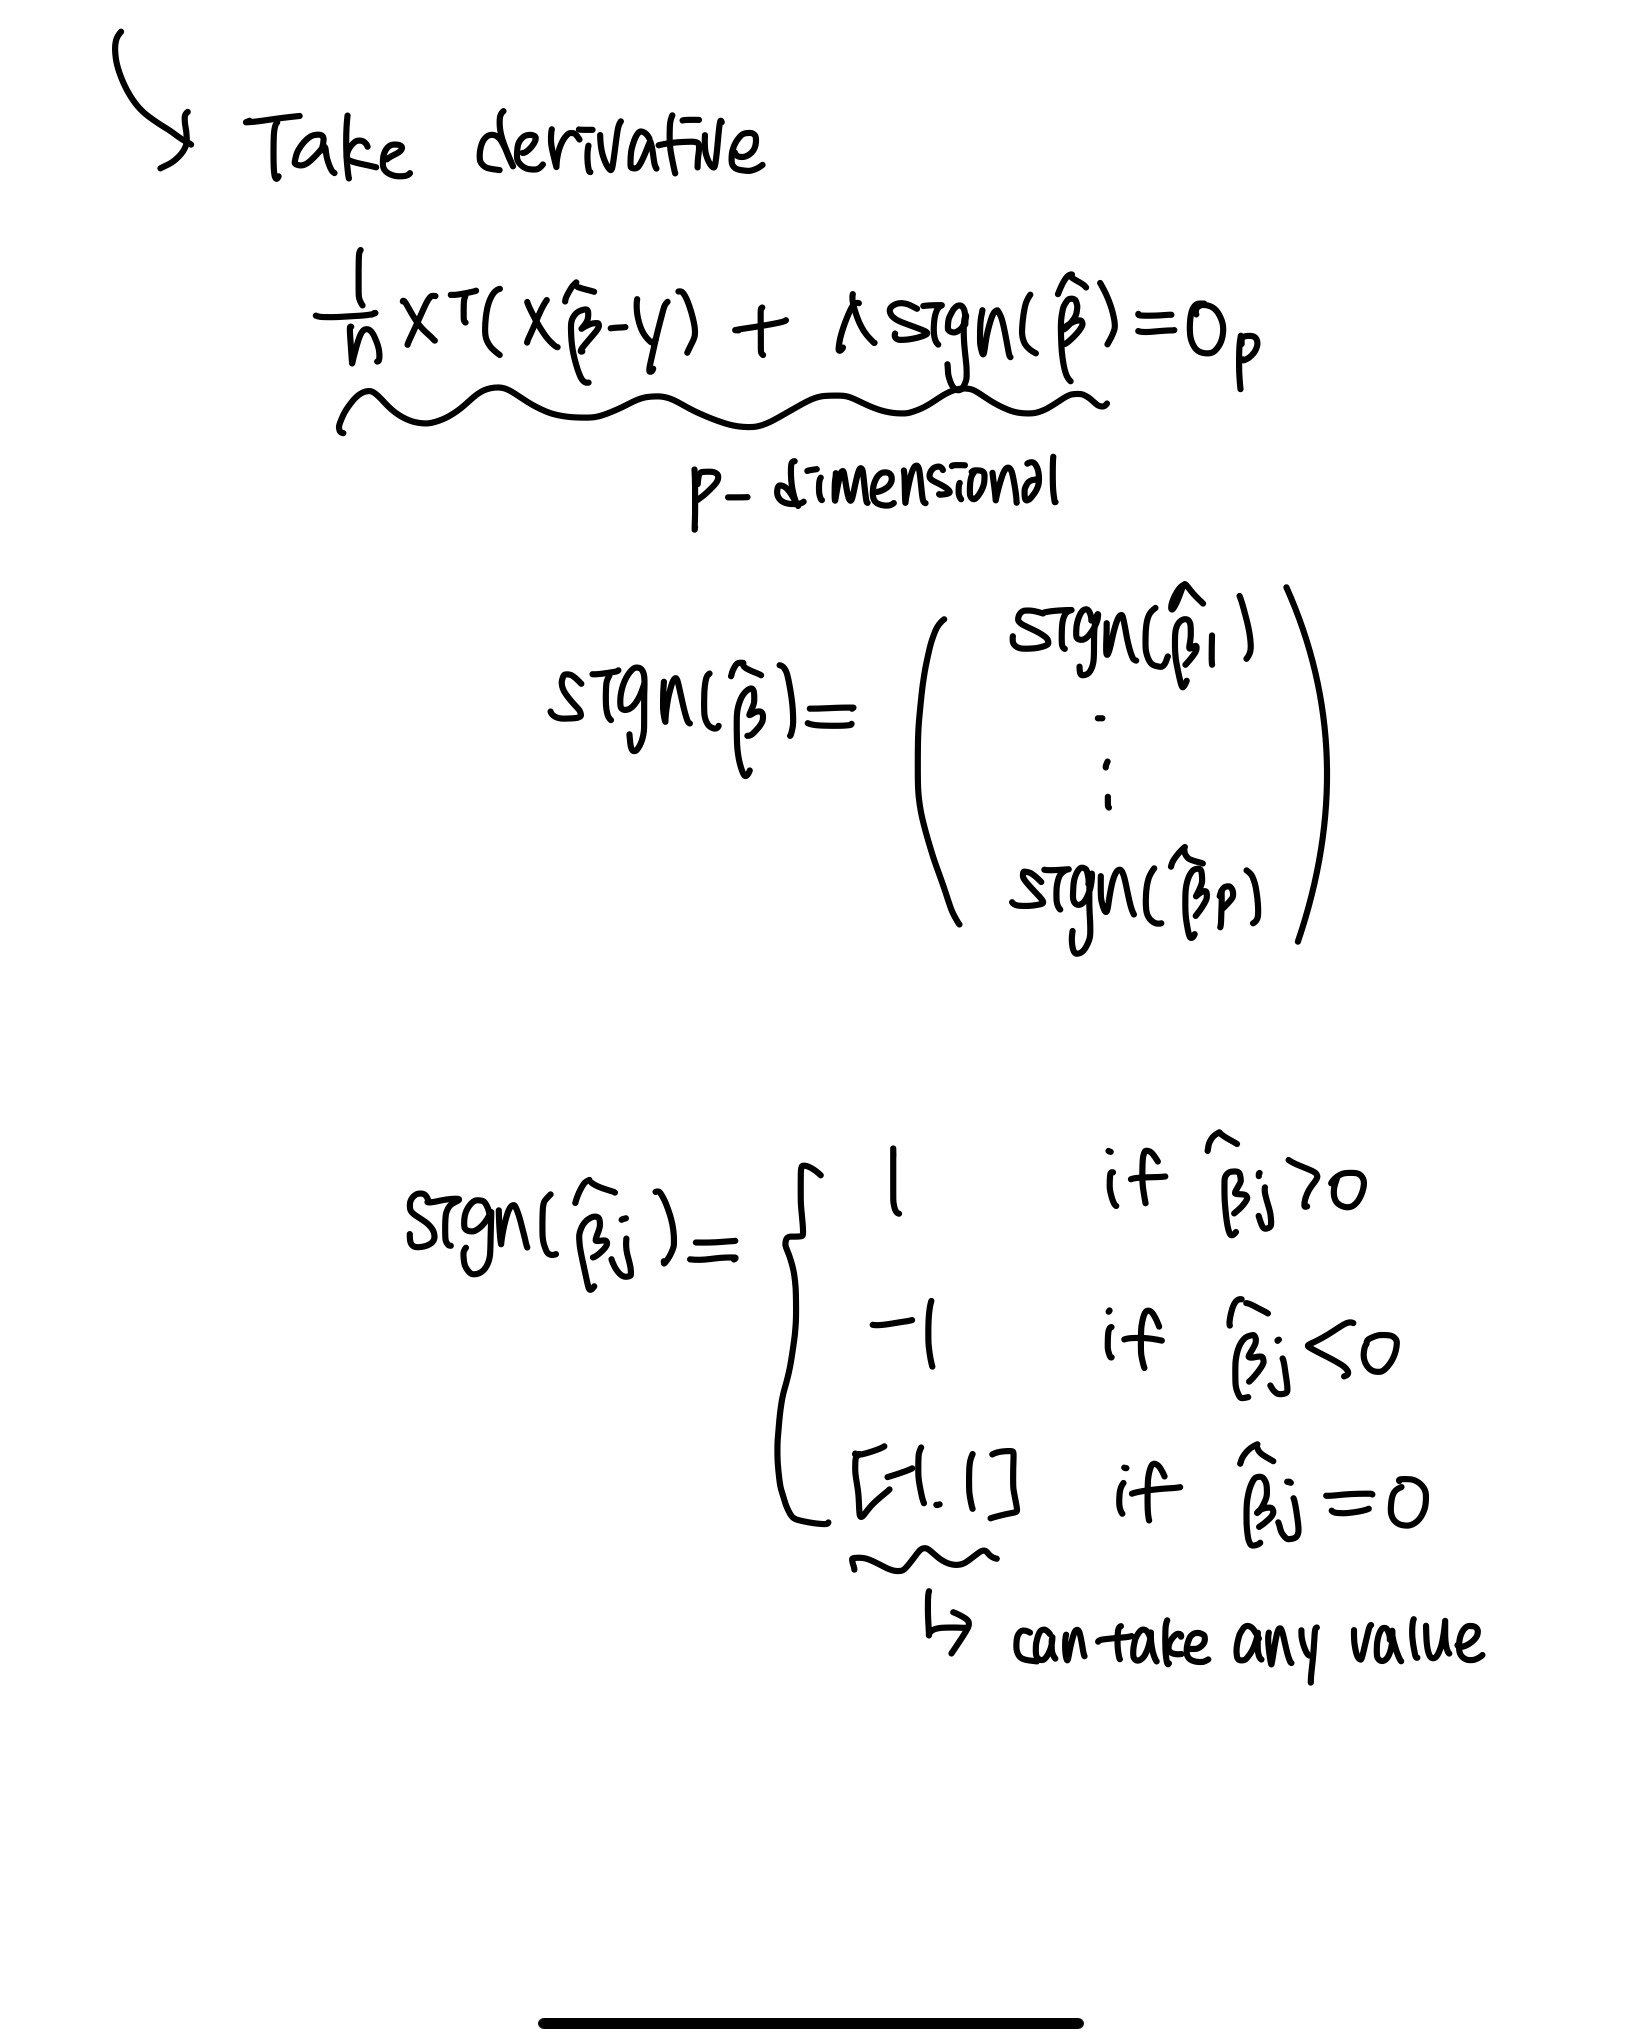 Take derivative
1/n X^T(Xβ̂-Y) + λ sign(β̂) = 0_p
p-dimensional
sign(β̂) = ( sign(β̂_1)
⋮
sign(β̂_p) )
sign(β̂_j) = { 1 if β̂_j > 0
-1 if β̂_j < 0
[-1. 1] if β̂_j = 0
can take any value